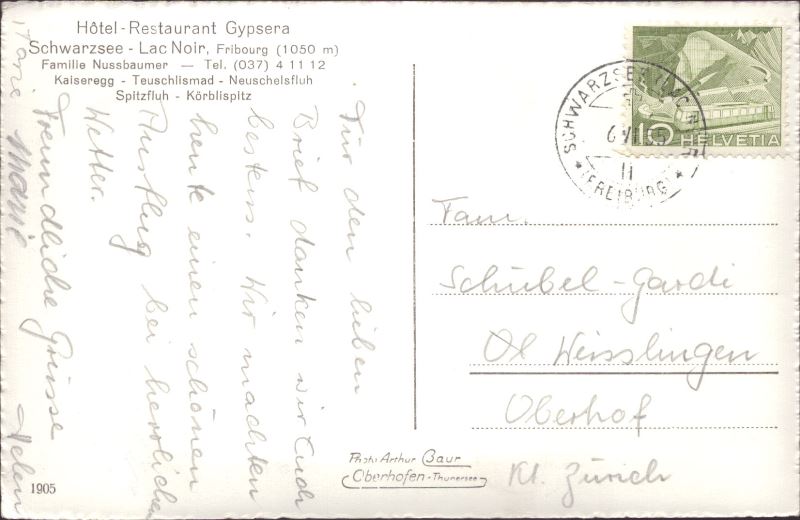 Hôtel-Restaurant Gypsera
Schwarzsee - Lac Noir, Fribourg (1050 m)
Familie Nussbaumer — Tel. (037) 4 11 12
Kaiseregg - Teuschlismad - Neuschelsfluh
Spitzfluh - Körblispitz
Für den lieben
Brief danken wir Euch
bestens. Wir machten
heute einen schönen
Ausflug bei herrlichem
Wetter.
Freundliche Grüsse
Marie
1905
Photo Arthur Baur
Oberhofen-Thunersee
SCHWARZSEE (LAC NOIR)
(FREIBURG)
10
HELVETIA
Fam.
Schübel-Gardi
Weisslingen
Oberhof
Kt. Zürich